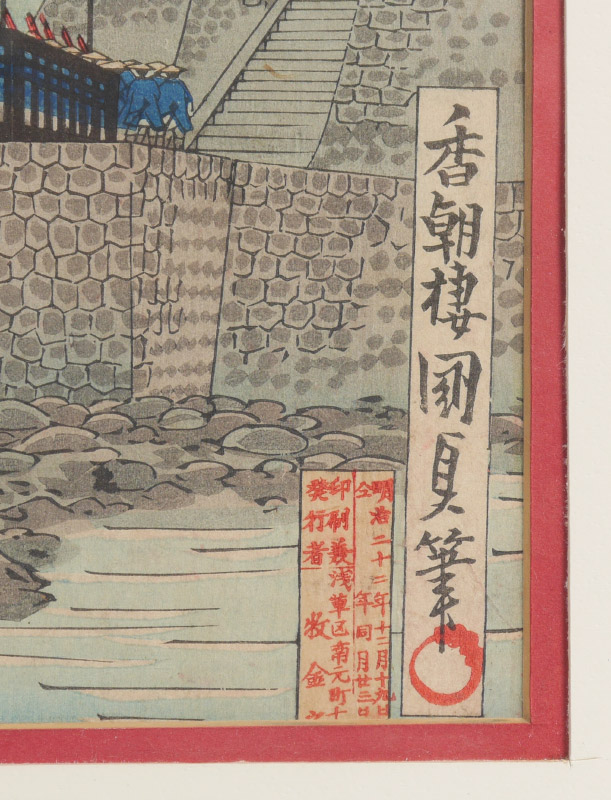 香朝樓國貞筆
明治二十二年十二月十九日
仝年同月廿三日
浅草区南元町十
印刷兼
発行者 牧金